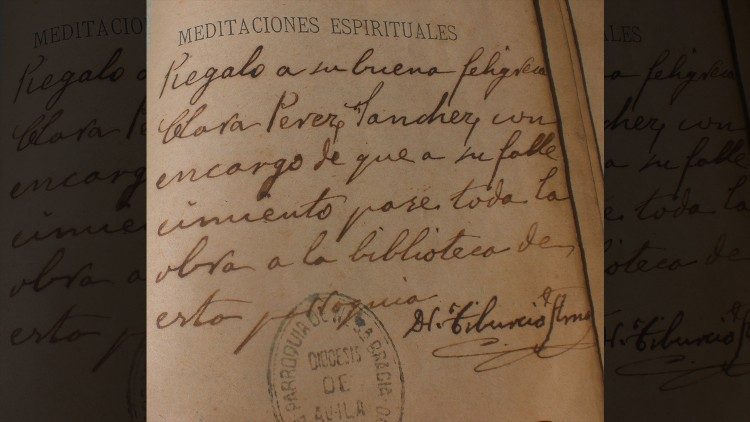 MEDITACIONES ESPIRITUALES
Regalo a su buena feligresa
Clara Perez Sanchez, con
encargo de que a su falle
cimiento pase toda la
obra a la biblioteca de
esta parroquia
Tiburcio
PARROQUIA DE GRACIA
DIOCESIS
DE
AVILA